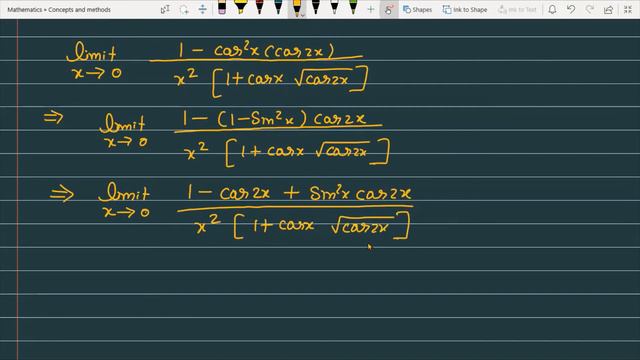 Mathematics » Concepts and methods
Shapes Ink to Shape Ink to Text
limit x→0 1 - cos²x (cos2x) / x² [1 + cosx √cos2x]
⇒ limit x→0 1 - (1 - Sin²x) cos2x / x² [1 + cosx √cos2x]
⇒ limit x→0 1 - cos2x + Sin²x cos2x / x² [1 + cosx √cos2x]